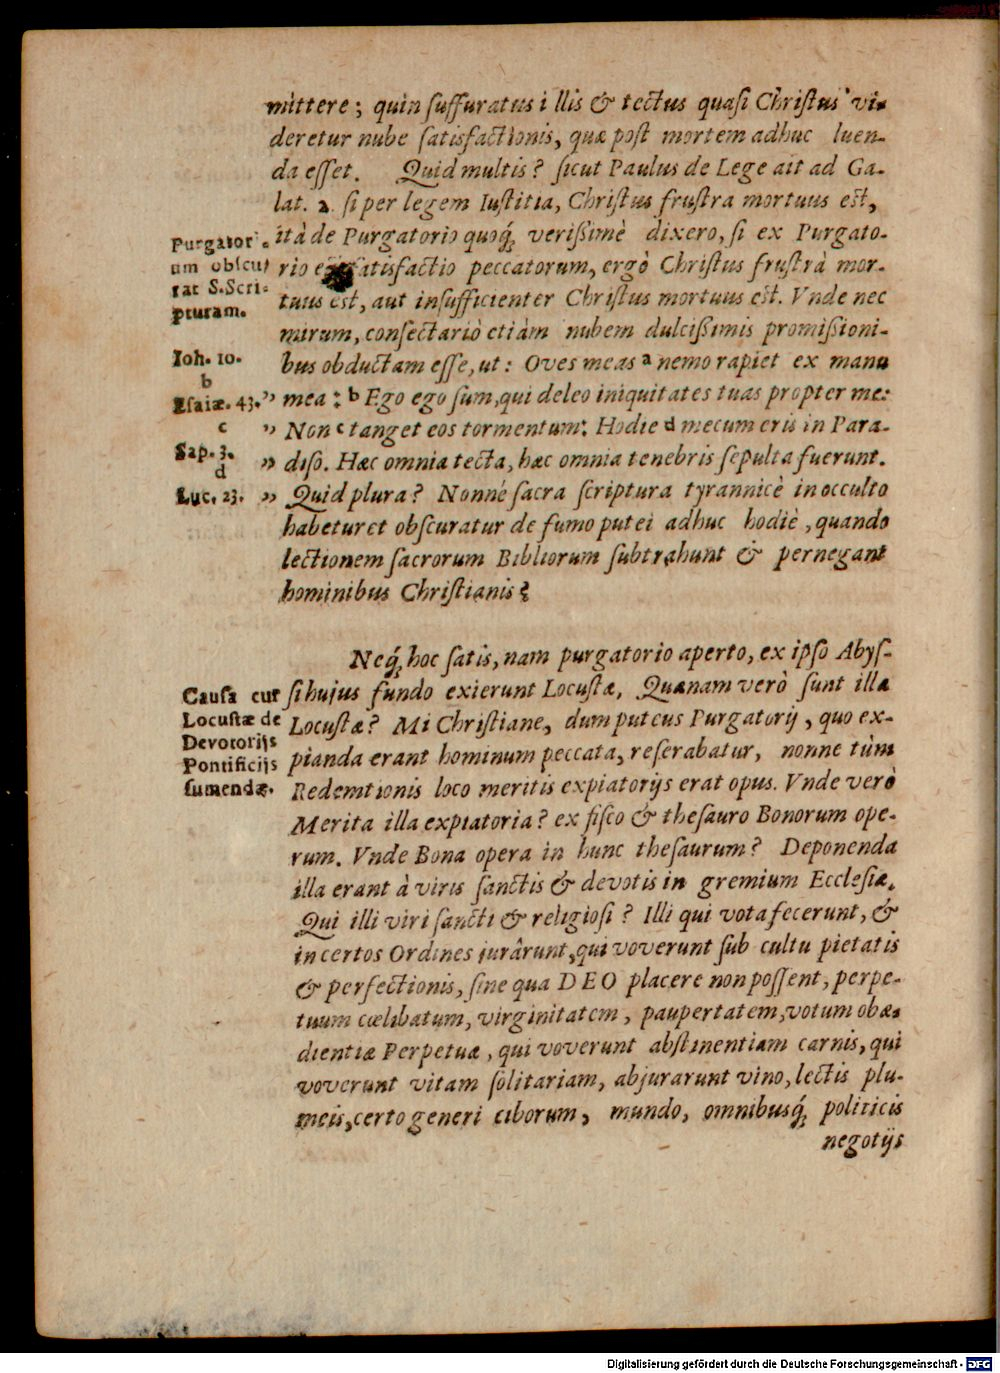 mittere; quin suffuratus illis & tectus quasi Christus vi-
deretur nube satisfactionis, quæ post mortem adhuc luen-
da esset. Quid multis? sicut Paulus de Lege ait ad Ga-
lat. 2. si per legem Iustitia, Christus frustra mortuus est,
ità de Purgatorio quoq́; verißimè dixero, si ex Purgato-
rio satisfactio peccatorum, ergò Christus frustrà mor-
tuus est, aut insufficienter Christus mortuus est. Vnde nec
mirum, consectariò etiàm nubem dulcißimis promißioni-
bus obductam esse, ut: Oves meas a nemo rapiet ex manu
" mea: b Ego ego sum, qui deleo iniquitates tuas propter me:
" Non c tanget eos tormentum: Hodie d mecum eris in Para-
" diso. Hæc omnia tecta, hæc omnia tenebris sepulta fuerunt.
" Quid plura? Nonné sacra scriptura tyrannicè in occulto
habetur et obscuratur de fumo putei adhuc hodiè, quando
lectionem sacrorum Bibliorum subtrahunt & pernegant
hominibus Christianis?
Purgatori-
um obscu-
rat S. Scri-
pturam.
Ioh. 10.
b
Esaiæ. 43.
c
Sap. 3.
d
Luc. 23.
Neq́; hoc satis, nam purgatorio aperto, ex ipso Abys-
si hujus fundo exierunt Locustæ, Quænam verò sunt illæ
Locustæ? Mi Christiane, dum puteus Purgatorij, quo ex-
pianda erant hominum peccata, reserabatur, nonne tùm
Redemtionis loco meritis expiatorijs erat opus. Vnde verò
Merita illa expiatoria? ex fisco & thesauro Bonorum ope-
rum. Vnde Bona opera in hunc thesaurum? Deponenda
illa erant à viris sanctis & devotis in gremium Ecclesiæ.
Qui illi viri sancti & religiosi? Illi qui vota fecerunt, &
in certos Ordines jurârunt, qui voverunt sub cultu pietatis
& perfectionis, sine qua DEO placere non possent, perpe-
tuum cœlibatum, virginitatem, paupertatem, votum obœ-
dientiæ Perpetuæ, qui voverunt abstinentiam carnis, qui
voverunt vitam solitariam, abjurarunt vino, lectis plu-
meis, certo generi ciborum, mundo, omnibusq́; politicis
negotijs
Causa cur
Locustæ de
Devotorijs
Pontificijs
sumendæ.
Digitalisierung gefördert durch die Deutsche Forschungsgemeinschaft - DFG